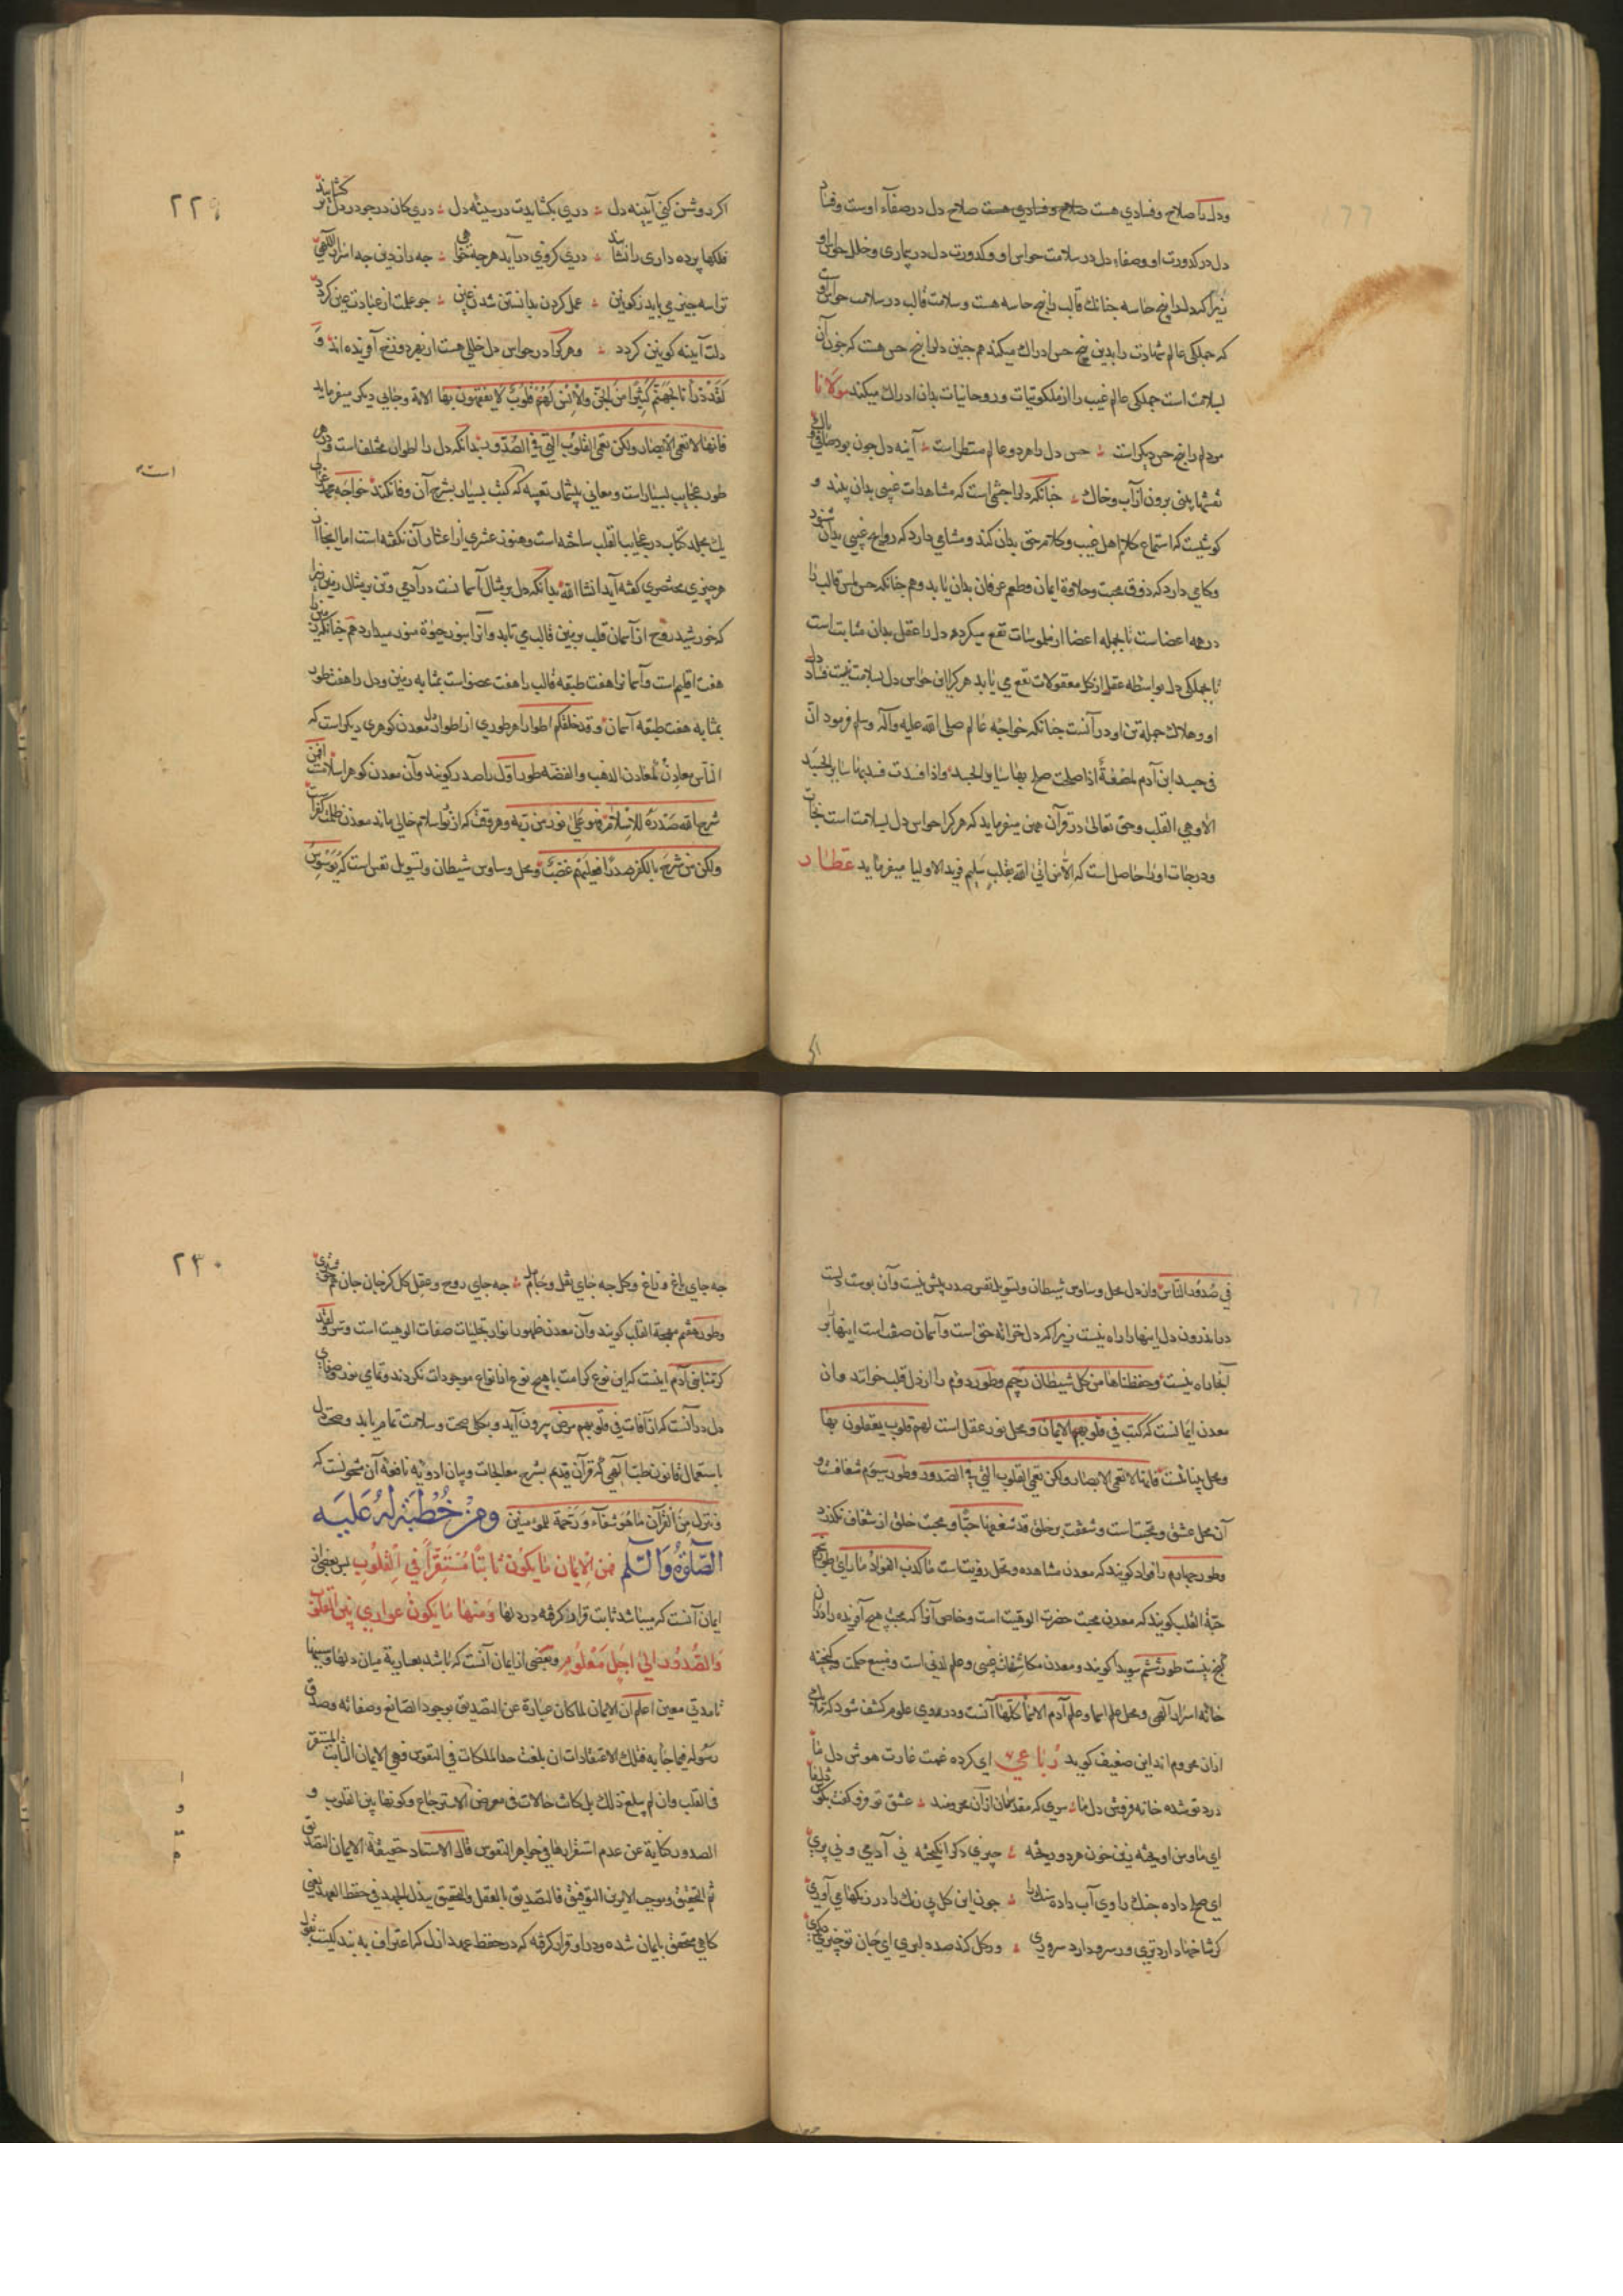 ودل را صلاح وفسادي هست صلاح وفسادي هست صلاح دل در صفآء اوست وفساد
دل در کدورت او وصفاء دل در سلامت حواس او وکدورت دل در بیماری وخلل حواس او
زیرا که دل را پنج حاسه است چنانك قالب را پنج حاسه هست وسلامت قالب در سلامت حواس اوست
که جملکی عالم شهادت را بدین پنج حس ادراك میکند هم چنین دل را پنج حس هست که چون آن
بسلامت است جملکی عالم غیب را از ملکوتیات وروحانیات بدان ادراك میکند مولانا
مر دلم را پنج حس دیکر است حس دل را هر دو عالم منظر است آینه دل چون بود صافی وپاك
نقشها بینی برون از آب وخاك چنانکه دل را چشمی است که مشاهدات غیبی بدان بیند و
کوشیست که استماع کلام اهل غیب وکلام حق بدان کند ومشامی دارد که روایح غیبی بدان شنود
وکامی دارد که ذوق محبت وحلاوة ایمان وطعم عرفان بدان یابد وهم چنانکه حس لمس قالب را
در همه اعضاست تا بجمله اعضا از ملموسات نفع میکیرد دل را عقل بدان مثابت است
تا بجملکی دل بواسطه عقل از کل معقولات نفع می یابد هر کرا این حواس دل بسلامت نیست فساد دل
او وهلاك جمله تن او در آنست چنانکه خواجه عالم صلی الله علیه وآله وسلم فرمود ان
فی جسد ابن آدم لمضغةً اذا صلحت صلح بها سایر الجسد واذا فسدت فسد بها سایر الجسد
الا وهي القلب وحق تعالیٰ در قرآن همین میفرماید که هر کرا حواس دل بسلامت است نجات
ودرجات او را حاصل است که الّا من اتیٰ الله بقلبٍ سلیم فرید الاولیا میفرماید عطار
۲۲۹
اکر روشن کنی آیینه دل دری بکشایدت در سینه دل دری کان در چو در دل بر کشایند
فلکها پرده داری را نشایند دری کز وی درآید هر چه خواهی چه راز دین چه اسرار الٓهی
ترا سه چیز می باید ز کونین عمل کردن بدانستن شدن عین چو علمت از عبادت عین کردد
دلت آیینه کونین کردد وهر کرا در حواس دل خللی هست او بهر دوزخ آفریده اند وَ
لَقَدْ ذَرَأْنَا لِجَهَنَّمَ کَثِیرًا مِنَ الْجِنِّ وَالْاِنْسِ لَهُمْ قُلُوبٌ لَا یَفْقَهُونَ بِهَا الایة وجایی دیکر میفرماید
فانها لا تعمی الابصار ولکن تعمی القلوب التی فی الصدور وبدانکه دل را اطوار مختلف است ودر هر
طور عجایب بسیار است ومعانی بیشمار تعبیه که کتب بسیار بشرح آن وفا نکند خواجه محمد غزالی
یك مجلد کتاب در عجایب القلب ساخته است وهنوز عشری از اعشار آن نکفته است اما اینجا از
هر چیزی مختصری کفته آید انشا الله بدانکه دل بر مثال آسمانست در آدمی وتن بر مثال زمین زیرا
که خورشید روح از آسمان قلب بر زمین قالب می تابد و او را بنور حیوة منور میدارد هم چنانکه زمین را
هفت اقلیم است وآسمانرا هفت طبقه قالب را هفت عضو است بمثابه زمین ودل را هفت طور
بمثابه هفت طبقه آسمان وقد خلقکم اطوارا هر طوری از اطوار دل معدن کوهری دیکر است که
الناس معادن کمعادن الذهب والفضه طور اول را صدر کویند وآن معدن کوهر اسلامست افمن
شرح الله صدره للاسلام فهو علیٰ نور من ربه وهر وقت که از نور اسلام خالی ماند معدن ظلمت کفر است
ولکن من شرح بالکفر صدرًا فعلیهم غضب ومحل وساوس شیطان وتسویل نفس است که یوسوس
است
فی صدور الناس واز دل محل وساوس شیطان وتسویل نفس صدر بیش نیست وآن پوست دلست
در اندرون دل اینها را راه نیست زیرا که دل خزانه حق است وآسمان صفت است اینها را بر
آنجا راه نیست وحفظناها من کل شیطان رجیم وطور دوم را از دل قلب خوانند وان
معدن ایمانست که کتب فی قلوبهم الایمان ومحل نور عقل است لهم قلوب یعقلون بها
ومحل بینائست فانها لا تعمی الابصار ولکن تعمی القلوب التی فی الصدور وطور سیوم شغافست و
آن محل عشق ومحبتاست وشفقت بر خلق قد شغفها حبًا ومحبت خلق از شغاف نکذرد
وطور چهارم را فواد کویند که معدن مشاهده ومحل رؤیتاست ما کذب الفوادُ ما رأی طور پنجم
حبّة القلب کویند که معدن محبت حضرت الوهیت است وخاص آنرا که محبت هیچ آفریده را در ان
کنج نیست طور ششم سویدا کویند ومعدن مکاشفات غیبی وعلم لدنی است ومنبع حکمت وکنجینه
خانه اسرار آلهی ومحل علم اسما وعلم آدم الاسمآ کلها آنست ودر وی علوم کشف شود که ملایکه
ازان محروم اند این ضعیف کوید رباعی ای کرده غمت غارت هوش دل ما
درد تو شده خانه فروش دل ما سری که مقدسان ازان محرومند عشق تو فرو کفت بکوش دل ما
ای با من آویخته زین خون هر دو ریخته چیزی دکر انکیخته نی آدمی ونی پری
ای صلح داده جنك را وی آب داده سنك را چون این کل بی رنك را در رنکها می آوری
کر شاخها دارد تری ور سرو دارد سروری ور کل کند صد دلبری ای جان تو چیزی دیکری
۲۳۰
چه جای باغ وراغ وکل چه جای نقل وجام مل چه جای روح وعقل کل کز جان جان هم خوشتری
وطور هفتم مهجة القلب کویند وآن معدن ظهور انوار تجلیات صفات الوهیت است وسر ولقد
کرمنا بنی آدم اینست که این نوع کرامت با هیچ نوع از انواع موجودات نکردند وتمامی نور وصفای
دل در آنست که از آفات فی قلوبهم مرض بیرون آید وبکلی صحت وسلامت تمام یابد وصحت دل
باستعمال قانون طب الهی که قرآن قدیم بشرح معالجات وبیان ادویه نافعه آن مشحونست که
وننزل من القرآن ما هو شفآء ورحمة للمومنین ومن خطبة له علیه
الصلوة والسلم فمن الایمان ما یکون ثابتًا مستقرًا فی القلوب پس بعضی از
ایمان آنست که میباشد ثابت قرار کرفته در دلها ومنها ما یکون عواری بین القلوب
والصدور الیٰ اجل معلوم وبعضی از ایمان آنست که باشد بعاریة میان دلها وسینها
تا مدتی معین اعلم ان الایمان لما کان عبارة عن التصدیق بوجود الصانع وصفاته وصدق
رسوله فیما جا به فتلك الاعتقادات ان بلغت حد الملکات فی النفوس فهی الایمان الثابت المستقر
فی القلب وان لم یبلغ ذلك بل کانت حالات فی معرض الاسترجاع وکونها بین القلوب و
الصدور کنایة عن عدم استقرارها فی جواهر النفوس قال الاستاد حقیقة الایمان التصدیق
ثم التحقیق وموجب الامرین التوفیق فالتصدیق بالعقل والتحقیق ببذل الجهد فی حفظ العهد یعنی
کاهی محقق بایمان شده ودر او قرار کرفته که در حفظ عهد ازل که اعتراف به بندکیست بقول